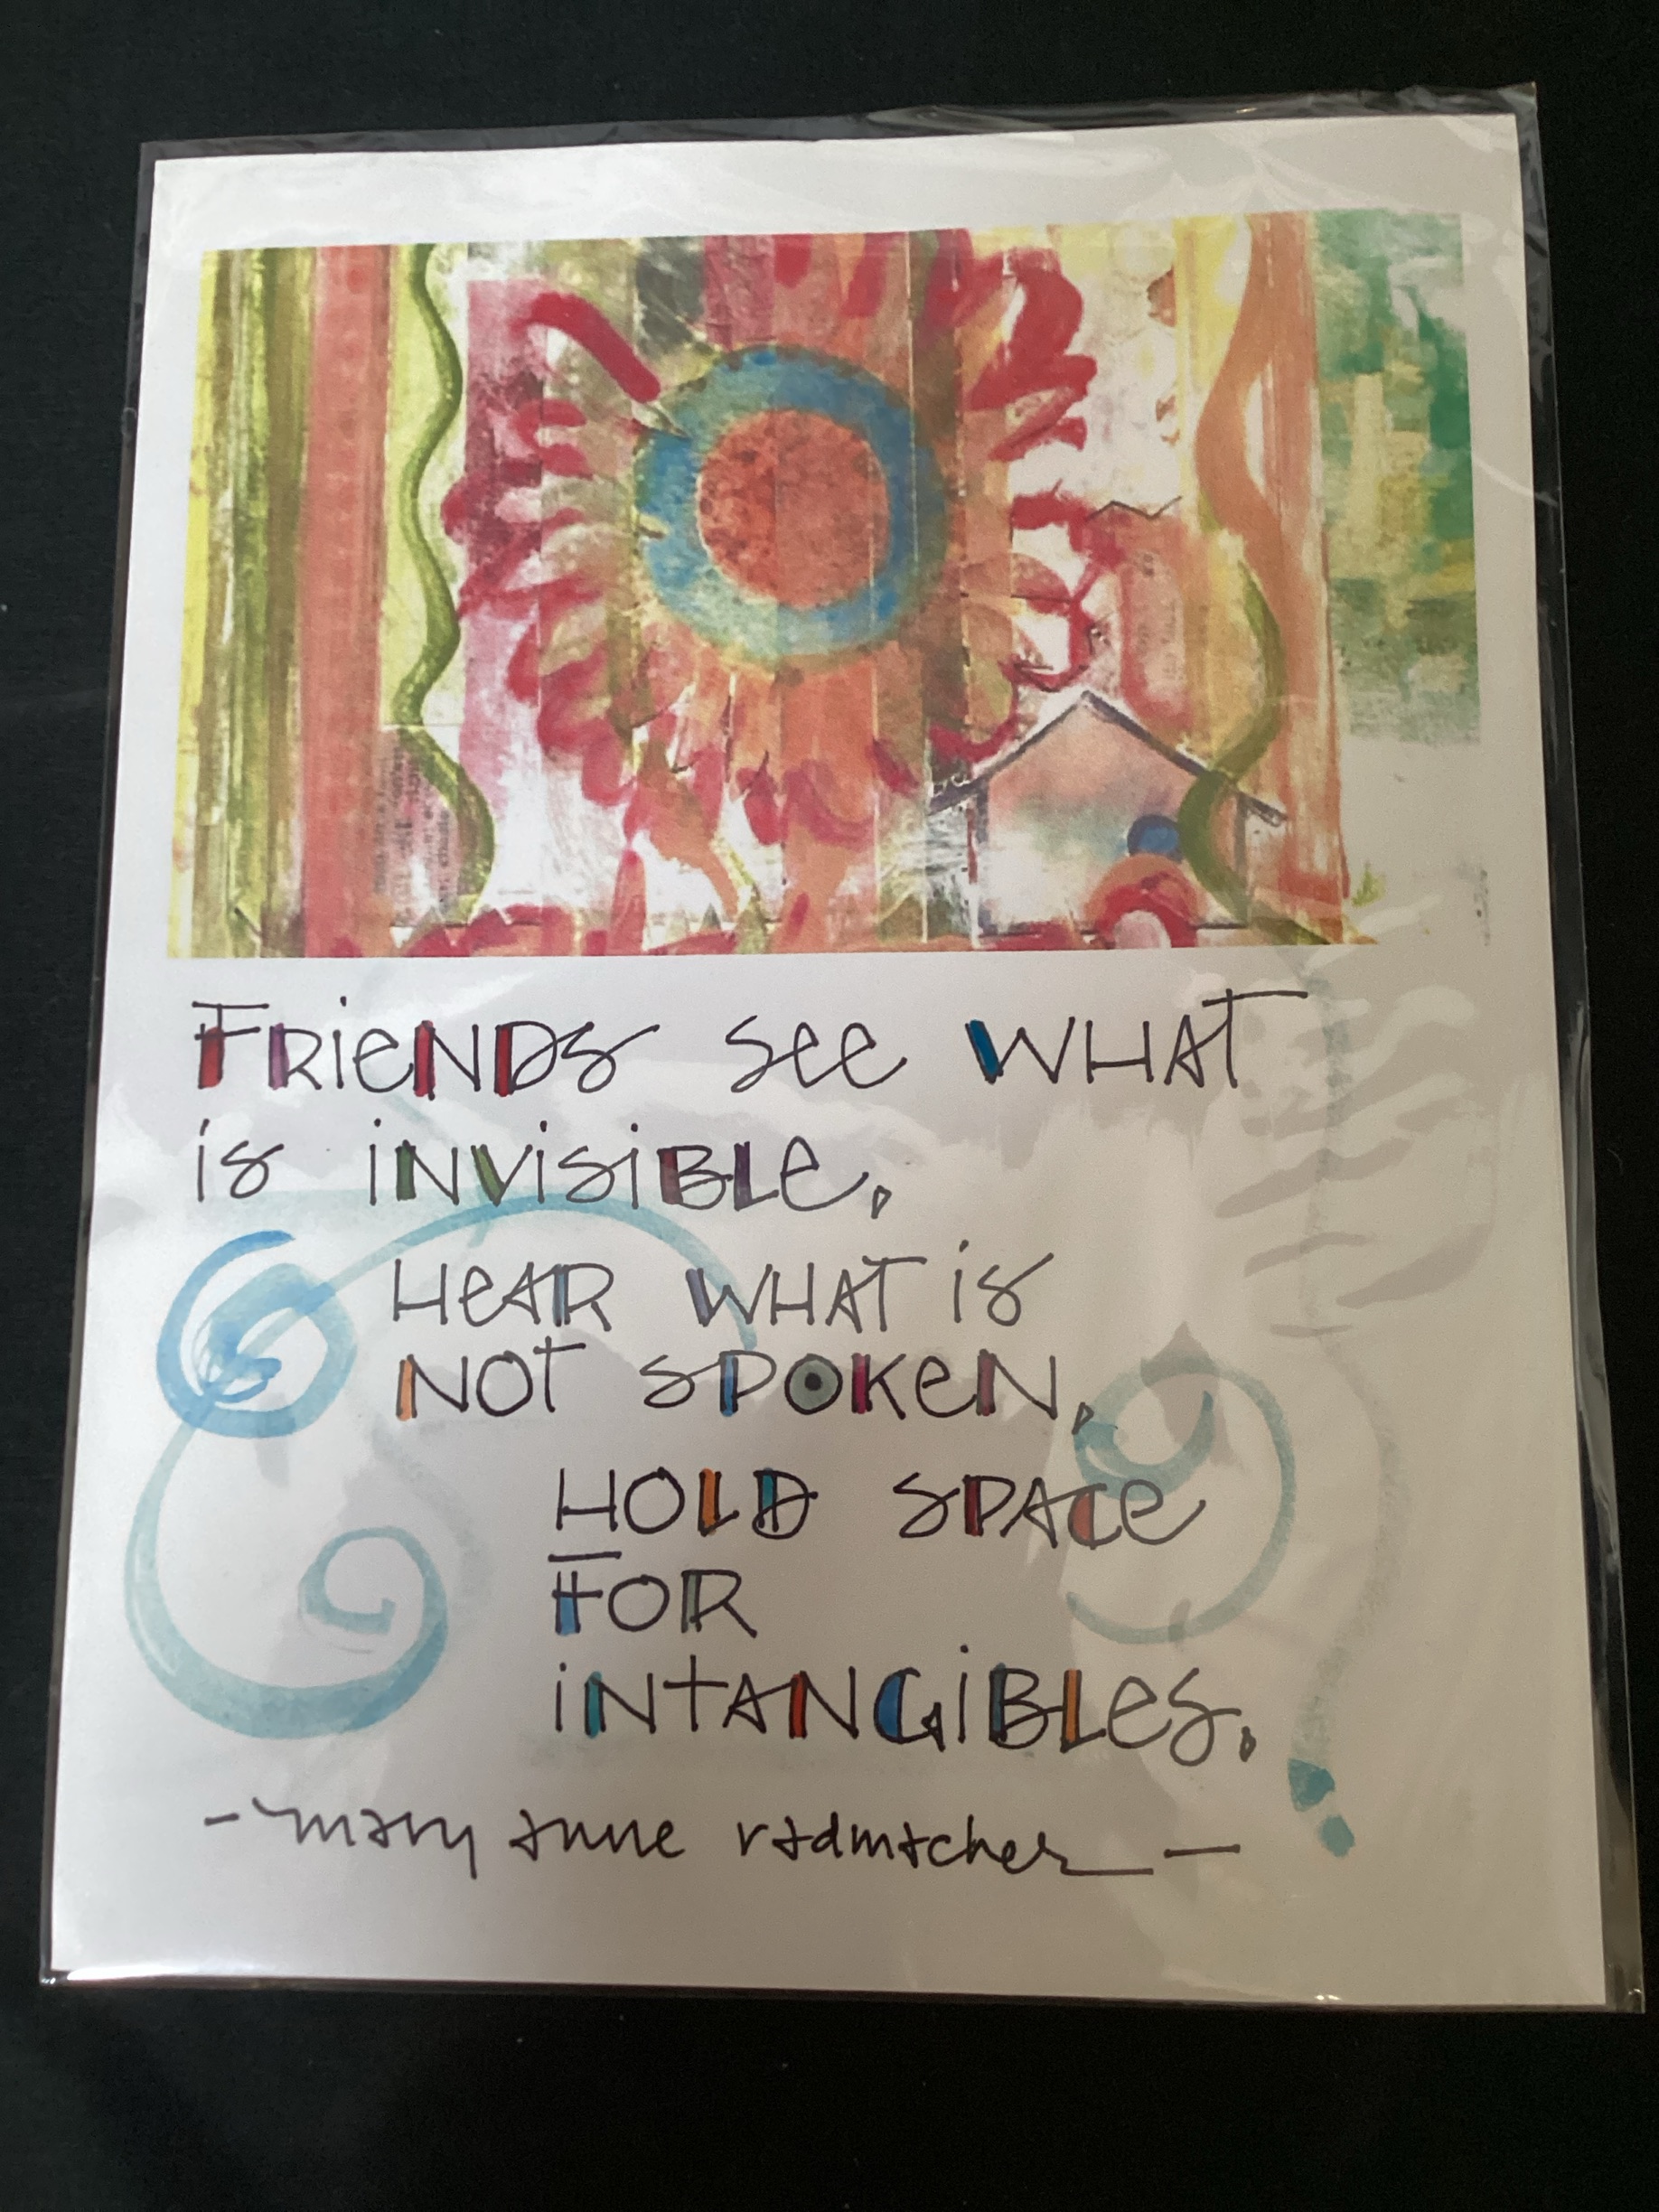 Friends see what
is invisible,
Hear what is
not spoken,
Hold space
for
intangibles.
- mary anne radmacher -